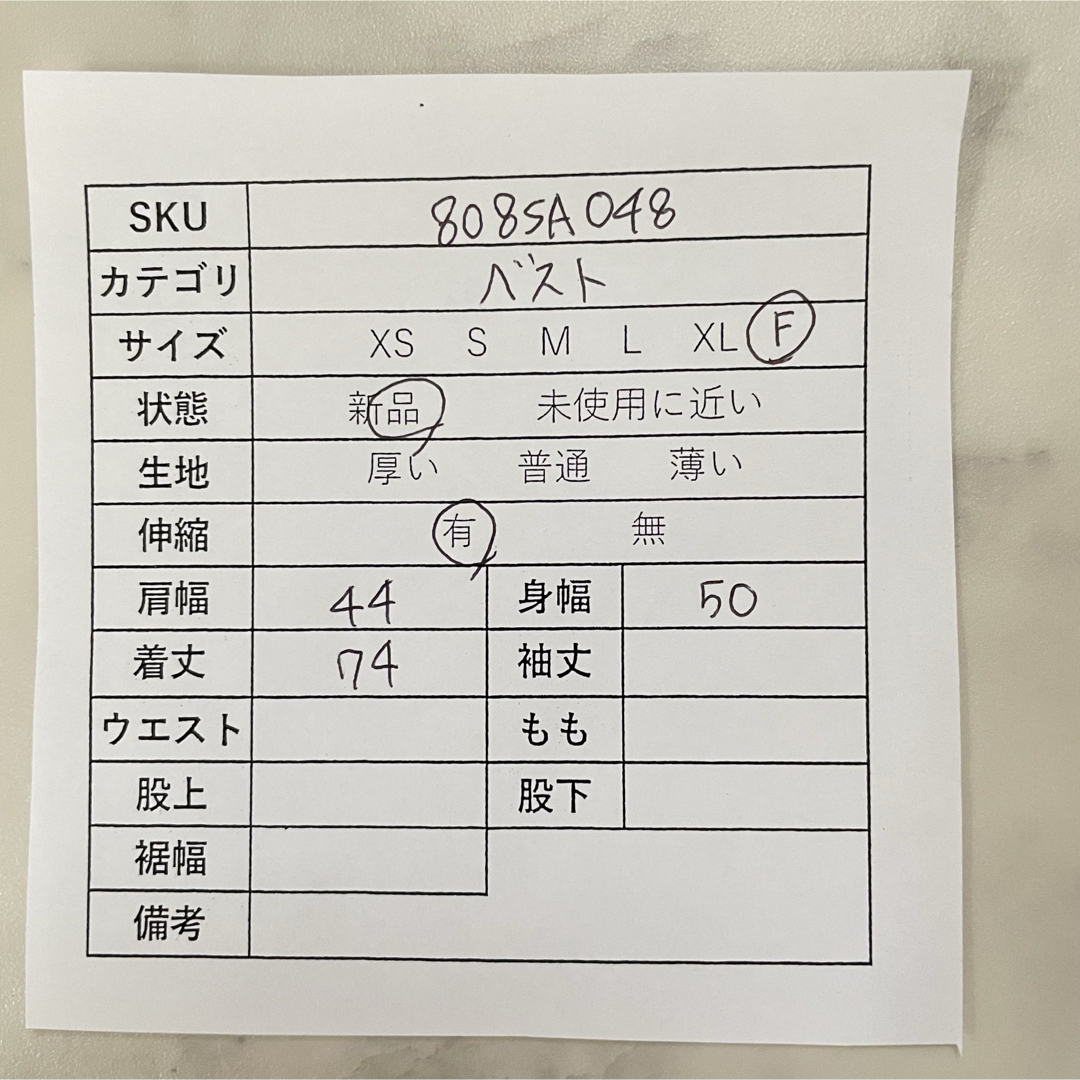 SKU 8085A048
カテゴリ ベスト
サイズ XS S M L XL F
状態 新品 未使用に近い
生地 厚い 普通 薄い
伸縮 有 無
肩幅 44 身幅 50
着丈 74 袖丈
ウエスト もも
股上 股下
裾幅
備考